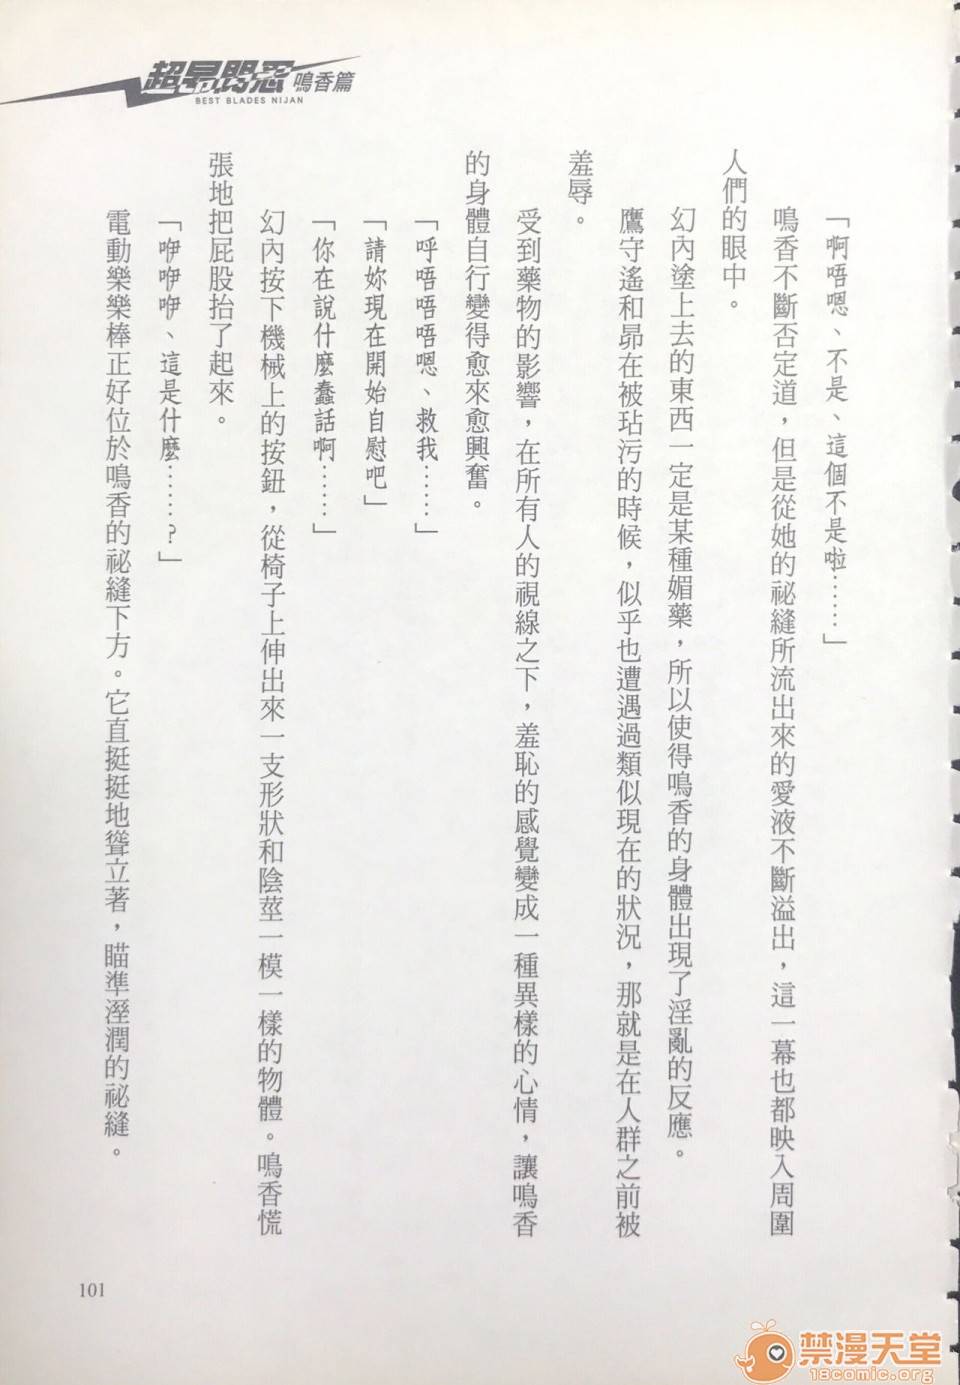 超昂閃忍 鳴香篇
BEST BLADES NIJAN
「啊唔嗯、不是、這個不是啦……」
鳴香不斷否定道，但是從她的祕縫所流出來的愛液不斷溢出，這一幕也都映入周圍
人們的眼中。
幻內塗上去的東西一定是某種媚藥，所以使得鳴香的身體出現了淫亂的反應。
鷹守遙和昴在被玷污的時候，似乎也遭遇過類似現在的狀況，那就是在人群之前被
羞辱。
受到藥物的影響，在所有人的視線之下，羞恥的感覺變成一種異樣的心情，讓鳴香
的身體自行變得愈來愈興奮。
「呼唔唔唔嗯、救我……」
「請妳現在開始自慰吧」
「你在說什麼蠢話啊……」
幻內按下機械上的按鈕，從椅子上伸出來一支形狀和陰莖一模一樣的物體。鳴香慌
張地把屁股抬了起來。
「咿咿咿、這是什麼……？」
電動樂樂棒正好位於鳴香的祕縫下方。它直挺挺地聳立著，瞄準溼潤的祕縫。
101
禁漫天堂
18comic.org